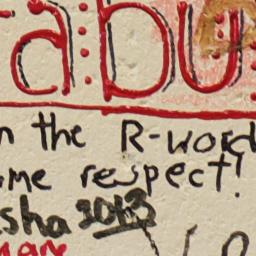 abu
n the R-word
me respect!
sha 2013